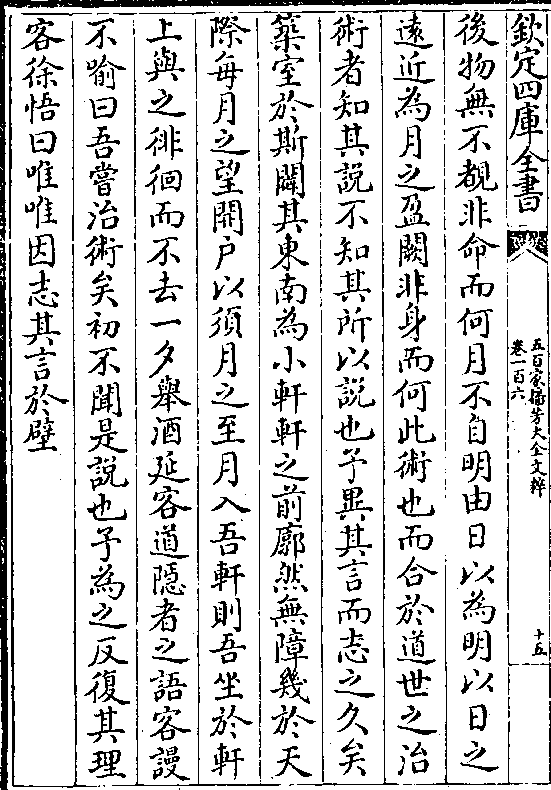 欽定四庫全書
五百家播芳大全文粹
卷一百六
十五
後物無不覩非命而何月不自明由日以為明以日之
遠近為月之盈闕非身而何此術也而合於道世之治
術者知其説不知其所以説也予異其言而志之久矣
築室於斯闢其東南為小軒軒之前廓然無障幾於天
際每月之望開户以須月之至月入吾軒則吾坐於軒
上與之徘徊而不去一夕舉酒延客道隱者之語客謾
不喻曰吾嘗治術矣初不聞是説也予為之反復其理
客徐悟曰唯唯因志其言於壁